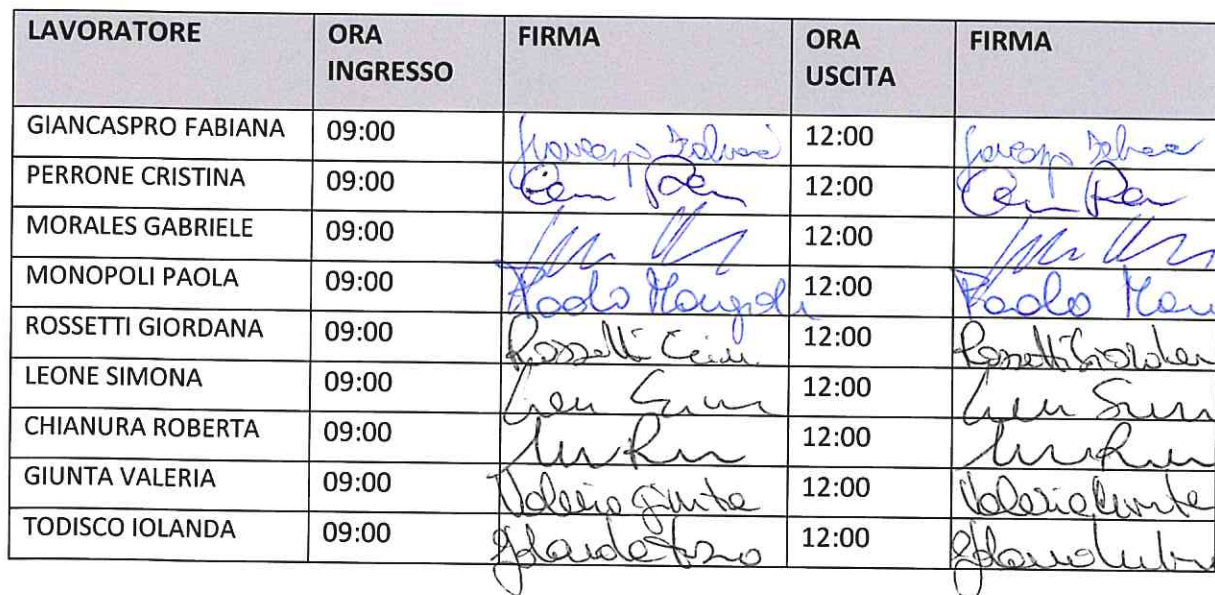 LAVORATORE ORA INGRESSO FIRMA ORA USCITA FIRMA
GIANCASPRO FABIANA 09:00 12:00
PERRONE CRISTINA 09:00 12:00
MORALES GABRIELE 09:00 12:00
MONOPOLI PAOLA 09:00 Paola Monopoli 12:00 Paola
ROSSETTI GIORDANA 09:00 Rossetti 12:00 Rossetti
LEONE SIMONA 09:00 12:00
CHIANURA ROBERTA 09:00 12:00
GIUNTA VALERIA 09:00 Valeria Giunta 12:00 Valeria Giunta
TODISCO IOLANDA 09:00 12:00